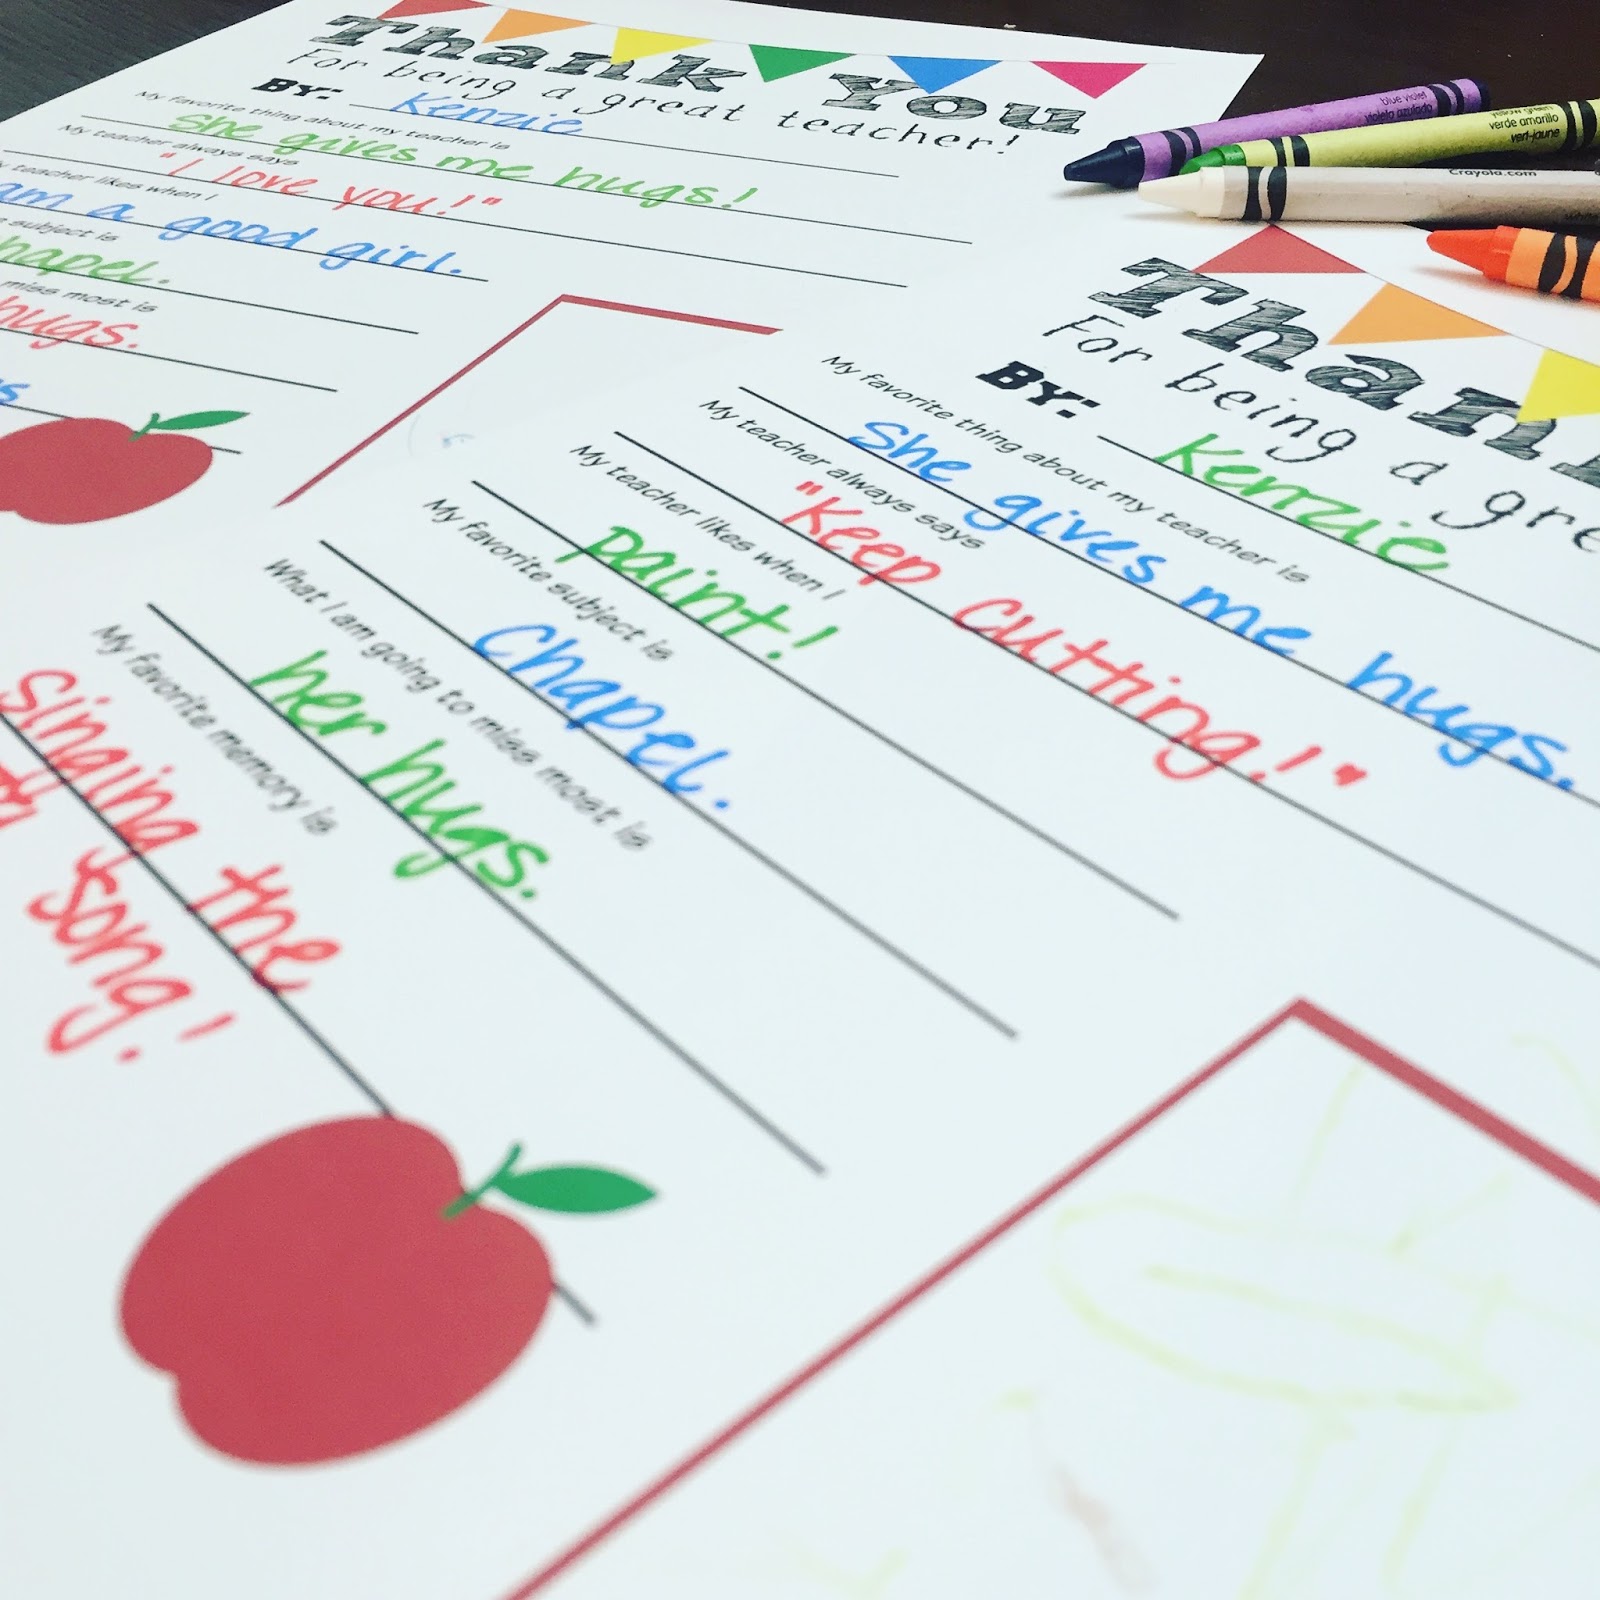 Thank You
For being a great teacher!
BY: Kenzie
My favorite thing about my teacher is
she gives me hugs!
My teacher always says
"I love you!"
teacher likes when I
am a good girl.
subject is
hapel.
miss most is
hugs.
Than
For being a gre
BY: Kenzie
My favorite thing about my teacher is
She gives me hugs.
My teacher always says
"Keep cutting!"
My teacher likes when I
paint!
My favorite subject is
Chapel.
What I am going to miss most is
her hugs.
My favorite memory is
singing the
song!
blue violet
violeta azulado
yellow green
verde amarillo
vert-jaune
Crayola.com